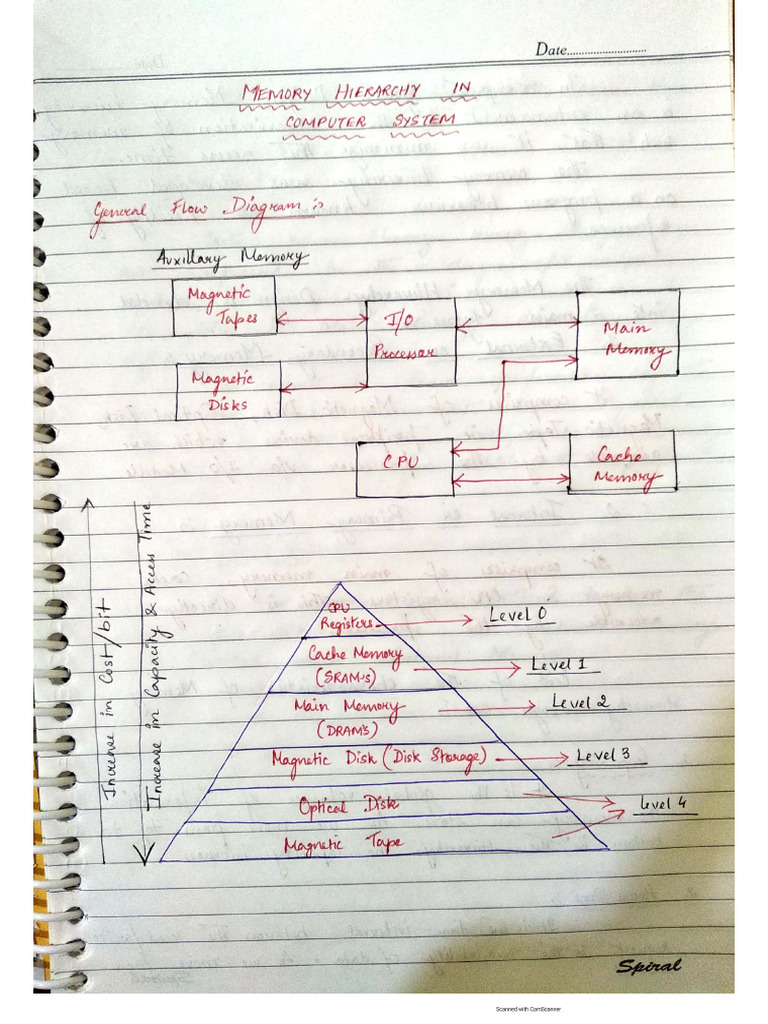 Date..............................
MEMORY HIERARCHY IN
COMPUTER SYSTEM
General Flow Diagram :-
Auxillary Memory
Magnetic
Tapes
I/O
Processor
Main
Memory
Magnetic
Disks
CPU
Cache
Memory
Increase in Cost/bit
Increase in Capacity & Access Time
CPU
Registers
Level 0
Cache Memory
(SRAM's)
Level 1
Main Memory
(DRAM'S)
Level 2
Magnetic Disk (Disk Storage)
Level 3
Optical Disk
Level 4
Magnetic Tape
Spiral
Scanned with CamScanner